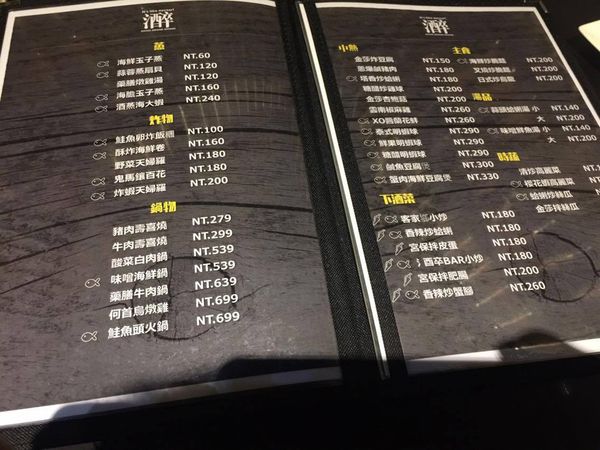 酒醉
蒸
海鮮玉子蒸 NT.60
蒜蓉蒸扇貝 NT.120
藥膳燉雞湯 NT.120
海膽玉子蒸 NT.160
酒蒸海大蝦 NT.240
炸物
鮭魚卵炸飯糰 NT.100
酥炸海鮮卷 NT.160
野菜天婦羅 NT.180
鬼馬攘百花 NT.180
炸蝦天婦羅 NT.200
鍋物
豬肉壽喜燒 NT.279
牛肉壽喜燒 NT.299
酸菜白肉鍋 NT.539
味噌海鮮鍋 NT.539
藥膳牛肉鍋 NT.639
何首烏燉雞 NT.699
鮭魚頭火鍋 NT.699
酒醉
小熱
金莎炸豆腐 NT.150
NT.180
塔香炒蛤蜊 NT.180
糖醋炒雞球 NT.200
金沙杏鮑菇 NT.200
雲南椒麻雞 NT.260
XO醬蘭花蚌 NT.260
泰式明蝦球 NT.290
鮮果明蝦球 NT.290
糖醋明蝦球 NT.290
鹹魚豆腐煲 NT.300
蟹肉海鮮豆腐煲 NT.330
下酒菜
客家小炒 NT.180
香辣炒蛤蜊 NT.180
宮保拌皮蛋 NT.180
酉卒BAR小炒 NT.180
宮保拌肥腸 NT.200
香辣炒蟹腳 NT.260
主食
海鮮炒飯麵 NT.200
叉燒炒飯麵 NT.180
日式炒烏龍 NT.180
湯品
蒜頭蛤蜊湯 小 NT.140
大 NT.200
味噌鮮魚湯 小 NT.140
大 NT.200
時蔬
清炒高麗菜
櫻花蝦高麗菜
蛤蜊炒絲瓜
金莎拌絲瓜